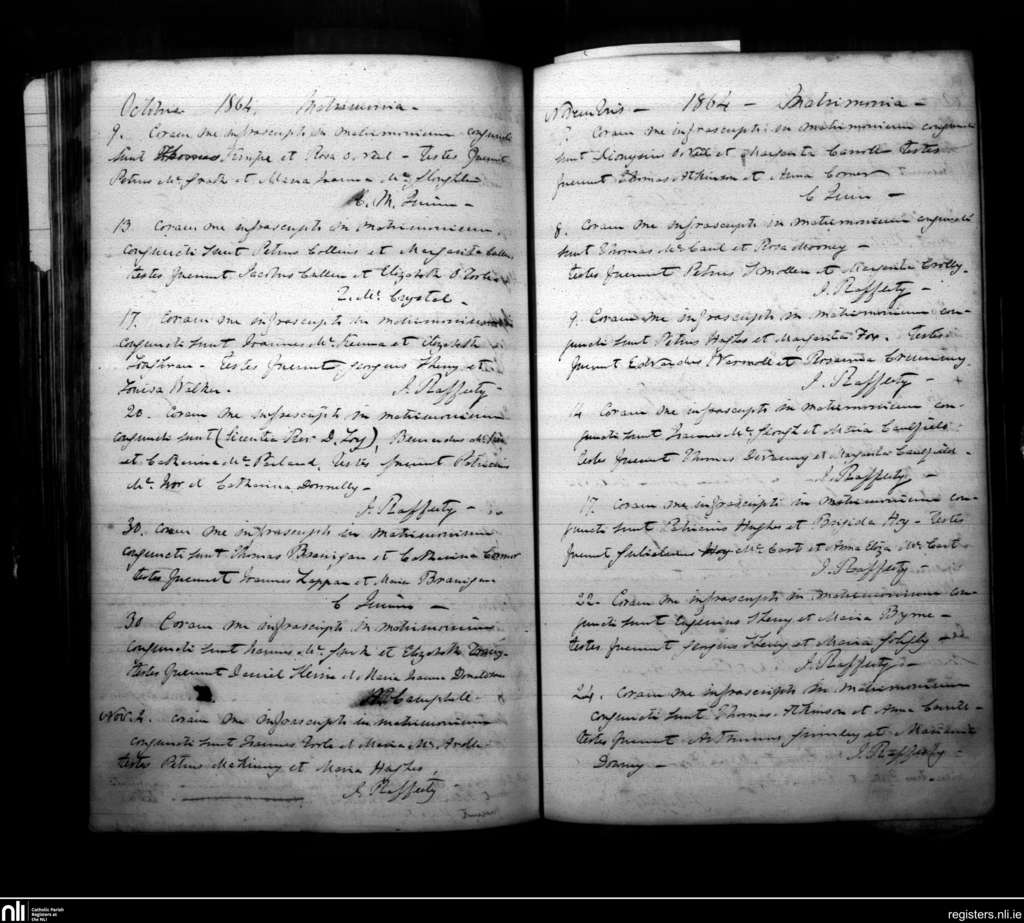 Octobris 1864. Matrimonia -
9. Coram me infrascripto in matrimonium conjuncti
sunt Thomas et Rosa - testes fuerunt
Petrus Mc et Maria Joanna Mc
M. Quinn -
13 Coram me infrascripto in matrimonium
conjuncti sunt Petrus Collins et Margarita Cullen
testes fuerunt Jacobus Cullen et Elizabeth
Mc. Crystal -
17. Coram me infrascripto in matrimonium
conjuncti sunt Joannes Mc. Kenna et Elizabeth
Loughran - testes fuerunt Sherry et
Louisa Walker. J. Rafferty -
20. Coram me infrascripto in matrimonium
conjuncti sunt (licentia Rev. D. Loy), Bernardus
et Catherina Mc. Parland, testes fuerunt Patricius
Mc. et Catharina Donnelly -
J. Rafferty -
30. Coram me infrascripto in matrimonium
conjuncti sunt Thomas Branigan et Catharina Corner
testes fuerunt Joannes Lappan et Maria Branigan
C Quinn -
30 Coram me infrascripto in matrimonium
conjuncti sunt Joannes Mc. et Elizabeth
testes fuerunt Daniel et Maria Joanna Donaldson
Campbell -
Nov. 2. Coram me infrascripto in matrimonium
conjuncti sunt Joannes Toole et Maria Mc. Ardle
testes Petrus McKinney et Maria Hughes,
J. Rafferty -
Novembris - 1864 - Matrimonia -
7. Coram me infrascripto in matrimonium conjuncti
sunt Dionysius et Margarita Carroll testes
fuerunt Thomas Atkinson et Anna Corner
C Quin -
8. Coram me infrascripto in matrimonium conjuncti
sunt Thomas Mc. Caul et Rosa Mooney -
testes fuerunt Petrus et Margarita Crolly.
J. Rafferty -
9. Coram me infrascripto in matrimonium con-
juncti sunt Petrus Hughs et Margarita Fox. Testes
fuerunt Edvardus Warmoll et Rosanna
J. Rafferty -
14 Coram me infrascripto in matrimonium con-
juncti sunt Joannes Mc. et Maria Caulfield
testes fuerunt Thomas et Margarita Caulfield.
J. Rafferty -
17. Coram me infrascripto in matrimonium con-
juncti sunt Patricius Hughs et Brigida Hoy - testes
fuerunt Mc. Cart et Anna Eliza Mc. Cart
J. Rafferty -
22. Coram me infrascripto in matrimonium con-
juncti sunt Eugenius Sherry et Maria Byrne -
testes fuerunt Sherry et Maria
J. Rafferty -
24. Coram me infrascripto in matrimonium
conjuncti sunt Thomas Atkinson et Anna
testes fuerunt Arthurus et
Downey - J. Rafferty -
nli
Catholic Parish
Registers at
the NLI
registers.nli.ie